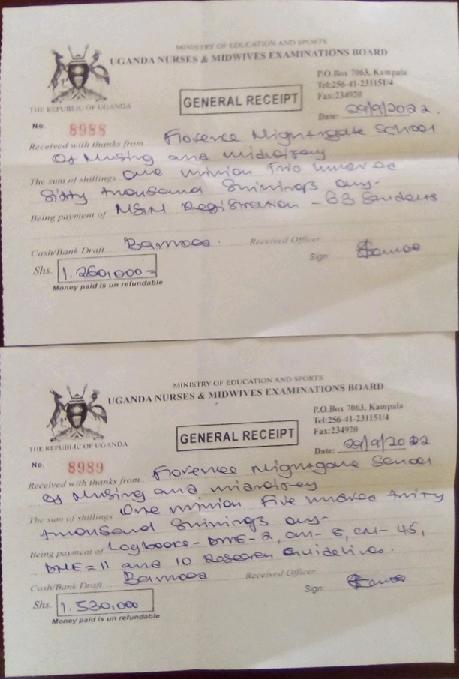 MINISTRY OF EDUCATION AND SPORTS
UGANDA NURSES & MIDWIVES EXAMINATIONS BOARD
P.O.Box 7063, Kampala
Tel:256-41-231151/4
Fax:234920
THE REPUBLIC OF UGANDA
GENERAL RECEIPT
Date: 29/9/2022
No. 8988
Received with thanks from Florence Nightngale School
of Nursing and midwifery
The sum of shillings One million Two hundred
Sixty thousand Shillings only-
Being payment of N&M Registration - 63 Students
Cash/Bank Draft Received Officer
Sign
Shs. 1,260,000=
Money paid is un refundable
MINISTRY OF EDUCATION AND SPORTS
UGANDA NURSES & MIDWIVES EXAMINATIONS BOARD
P.O.Box 7063, Kampala
Tel:256-41-231151/4
Fax:234920
THE REPUBLIC OF UGANDA
GENERAL RECEIPT
Date: 29/9/2022
No. 8989
Received with thanks from Florence Nightngale School
of Nursing and midwifery
The sum of shillings One million Five hundred thirty
thousand Shillings only-
Being payment of Logbooks - 45,
and 10 Research Guidelines.
Cash/Bank Draft Received Officer
Sign
Shs. 1,530,000
Money paid is un refundable